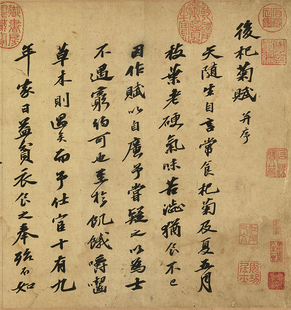 後杞菊賦 并序
天隨生自言常食杞菊及夏五月
枝葉老硬氣味苦澁猶食不已
因作賦以自廣予嘗疑之以為士
不遇窮約可也至於飢餓嚼齧
草木則過矣而予仕宦十有九
年家日益貧衣食之奉殆不如